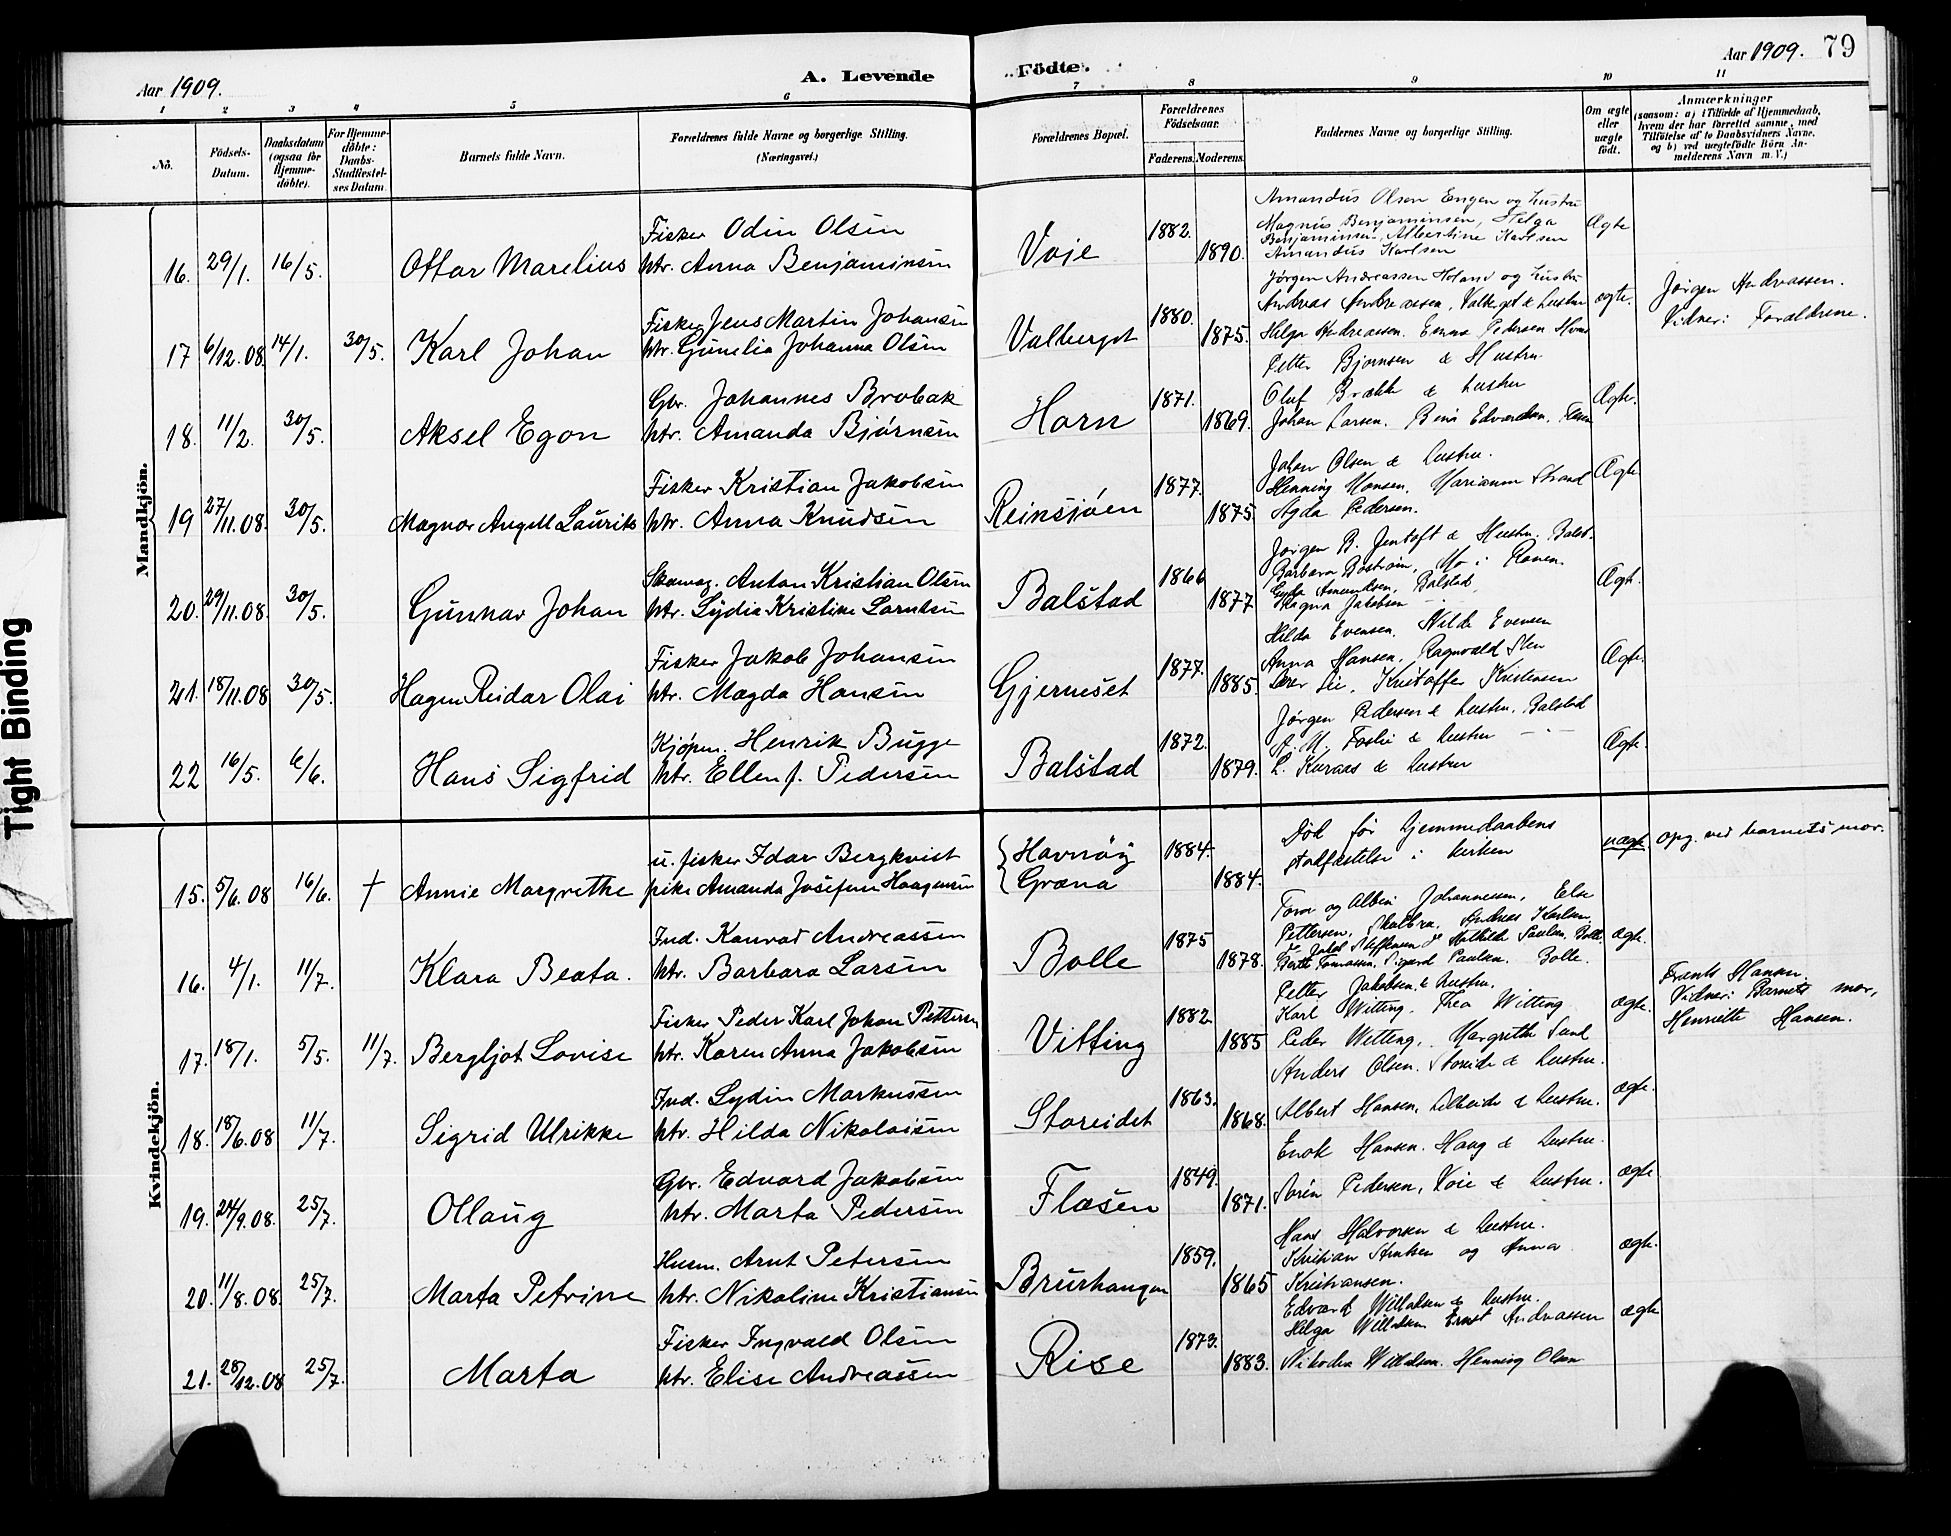 Aar 1909.
A. Levende
Fødte.
Aar 1909. 79
1 2 3 4 5 6 7 8 9 10 11
No.
Fødsels-
Datum.
Daabsdatum
(ogsaa for
Hjemme-
døbte).
For Hjemme-
døbte:
Daabs-
Stadfæstel-
ses Datum.
Barnets fulde Navn.
Forældrenes fulde Navne og borgerlige Stilling.
(Næringsvei.)
Forældrenes Bopæl.
Forældrenes
Fødselsaar.
Faderens. Moderens.
Faddernes Navne og borgerlige Stilling.
Om ægte
eller
uægte
født.
Anmærkninger
(saasom: a) i Tilfælde af Hjemmedaab,
hvem der har forrettet samme, med
Tilføielse af to Daabsvidners Navne,
og b) ved uægtefødte Børn An-
melderens Navn m. V.)
Mandkjön.
Amandus Olsen Engen og hustru
Fisker Odin Olsen
Voje 1882. Magnus Benjaminsen, Helga Ægte
Benjaminsen, Albertine Karlsen
16. 29/1. 16/5. Ottar Marelius htr. Anna Benjaminsen 1890. Amandus Karlsen
Jørgen Andreassen Holand og hustru
Fisker Jens Martin Johansen
Valberget 1880. Andreas Andreassen, Valberget & hustru ægte. Jørgen Andreassen.
17 6/12.08. 14/1. 30/5. Karl Johan htr. Gunelia Johanna Olsen 1875. Helga Andreassen. Emma Pedersen Vidner: Forældrene.
Petter Bjørnsen & Hustru
Gbr. Johannes Brobak
Horn 1871. Oluf & hustru Ægte.
18. 11/2. 30/5. Aksel Egon htr. Amanda Bjørnsen 1869. Johan Larsen.
Johan Olsen & hustru.
Fisker Kristian Jakobsen
Reinsjøen 1877. Henning Hansen. Marianne Strand Ægte
19 27/11.08. 30/5. Magnor Angell Laurits htr. Anna Knudsen 1875. Agda Pedersen.
Jørgen B. Jentoft & Hustru. Balst.
Anton Kristian Olsen
Balstad 1866 Barbara Boström, Mo i Ranen. Ægte.
Gyda Amundsen, Balstad,
20. 29/11.08. 30/5. Gunnar Johan htr. Lydia Kristine Larntsen 1877 Magna Jakobsen
Hilda Evensen. Nilda Evensen
Fisker Jakob Johansen
Gjerneset 1877. Anna Hansen. Ragnvald Ægte.
21. 18/11.08 30/5. Hagen Reidar Olai htr. Magda Hansen 1885. Kristoffer Kristensen
Jørgen Pedersen & hustru. Balstad
Kjøpm. Henrik Bugge
Balstad 1872. A. M. Foslie & hustru — " — Ægte.
22 16/5. 6/6. Hans Sigfrid htr. Ellen f. Pedersen 1879. L. Kuraas & hustru
Kvindekjön.
u. fisker Idar Bergkvist
Havnöy 1884. Død før hjemmedaabens uægte Opg. ved barnets mor.
stadfæstelse i kirken
15. 5/6.08 16/6. † Annie Margrethe pike Amanda Josefine Haagensen Græna 1884.
Tora og Albin Johannessen, Else
Ind. Konrad Andreassen
Bolle 1875 Pettersen, Skolbra. Andreas Karlsen, ægte.
Steffensen & Mathilde Paulsen. Bolle.
16. 4/1. 11/7. Klara Beata. htr. Barbara Larsen 1878. Berth Tomassen, Sigurd Paulsen. Bolle.
Petter Jakobsen & hustru.
Fisker Peder Karl Johan Pettersen
Vitting 1882. Karl Witting, Thea Witting ægte. Frants Hansen.
Vidner: Barnets mor,
17. 18/1. 5/5. 11/7. Bergljot Lovise htr. Karen Anna Jakobsen 1885 Peder Witting, Margrethe Sund Henriette Hansen.
Anders Olsen. Storeide & hustru.
Ind. Lydin Markussen
Storeidet 1863. Albert Hansen, Lilleeide & hustru. ægte.
18. 18/6.08 11/7. Sigrid Ulrikke htr. Hilda Nikolaisen 1868.
Enok Hansen. Haug & hustru.
Gbr. Edvard Jakobsen
Flæsen 1849. Sørin Pedersen, Voie & hustru. ægte
19. 24/9.08. 25/7. Ollaug htr. Marta Pedersen 1871.
Hans Halvorsen & hustru.
Husm. Arnt Petersen
Brurhaugen 1859. Kristian Arntsen og Anna ægte.
20. 11/8.08. 25/7. Marta Petrine htr. Nikoline Kristiansen 1865 Kristiansen.
Edvard Willadsen & hustru.
Fisker Ingvald Olsen
Rise 1873. Helga Willadsen Ernst Andreassen ægte
21. 28/12.08 25/7. Marta htr. Elise Andreassen 1883. Willadsen. Henning Olsen
Tight Binding